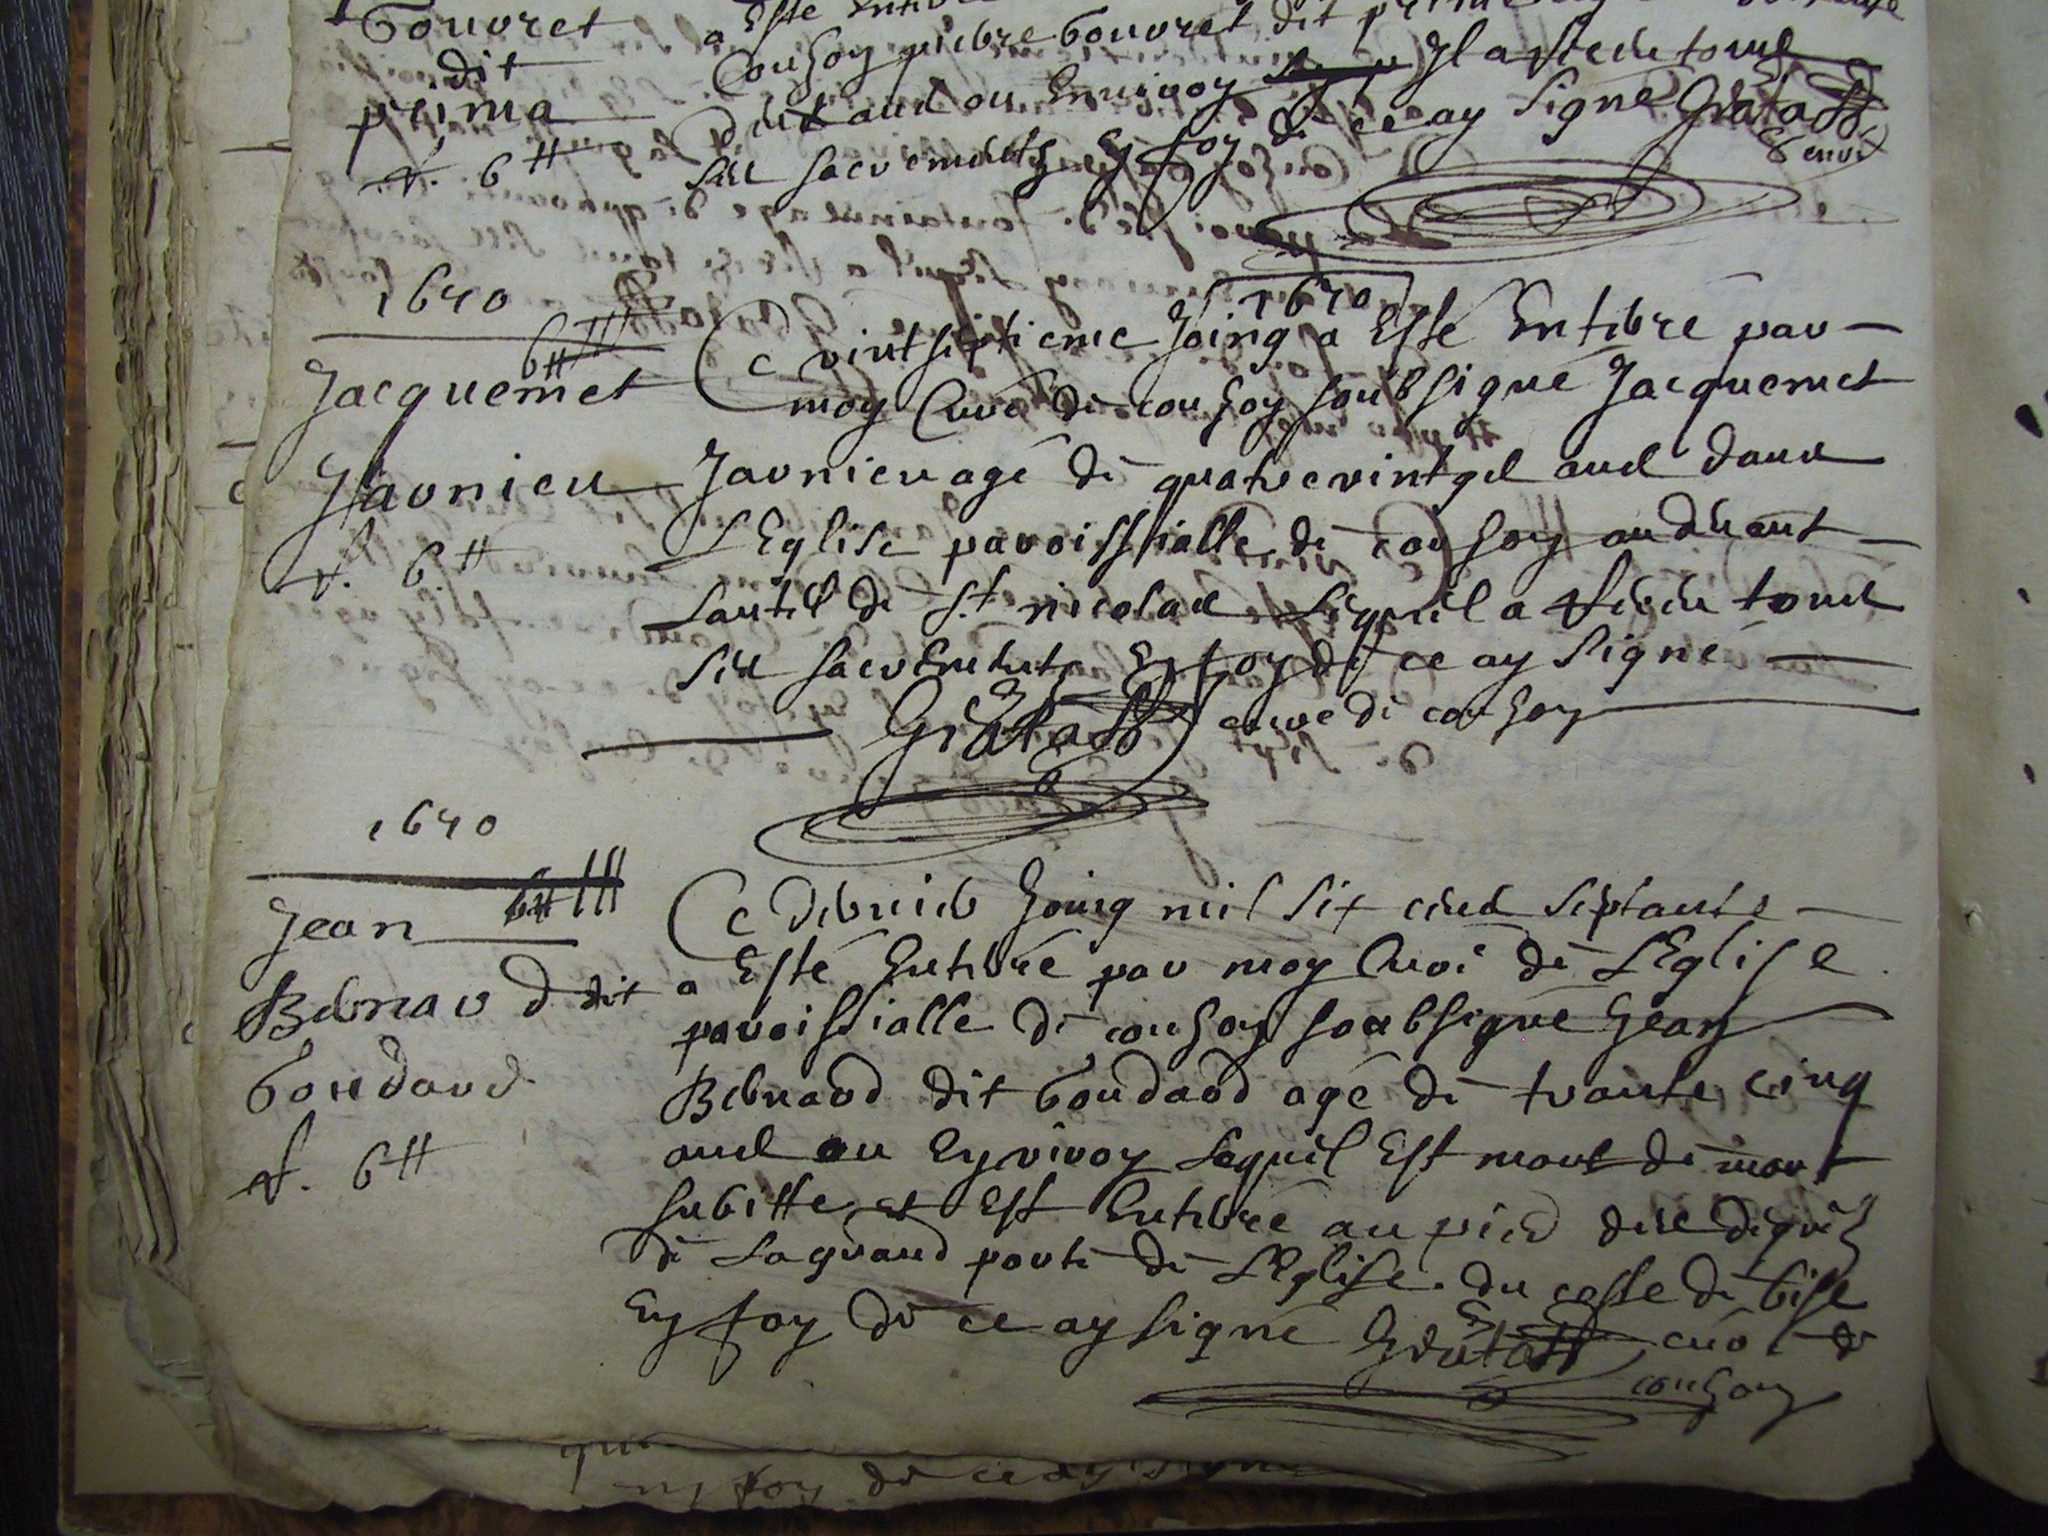 Bouvret
dit
prima
6 #
a Esté Enteré
Cousoy pierre Bouvret dit
ans ou Environ Il a Receu tous
ses sacrements En foy de ce ay signé
1670
6 #
Jacquemet
Jaunieu
R. 6 #
1670
Ce vintseptieme Joing a Esté Enteré par
moy Curé de cousoy soubsigné Jacquemet
Jaunieu agé de quatre vintges ans dans
L'Eglise paroissialle de cousoy au devant
Lautel de St nicolas Lequel a Receu tous
ses sacrements En foy de ce ay signé
curé de cousoy
1670
Jean 6 #
Bernard dit
Boudard
R. 6 #
Ce dernier Joing mil six cens septante
a Esté Enteré par moy Curé de L'Eglise
paroissialle de cousoy soubsigné Jean
Bernard dit Boudard agé de trante cinq
ans ou Environ Lequel Est mort de mort
subitte et Est Enteré au pied des degré
de La grand porte de L'Eglise du coste de bise
En foy de ce ay signé curé de
cousoy
en foy de ce ay signé